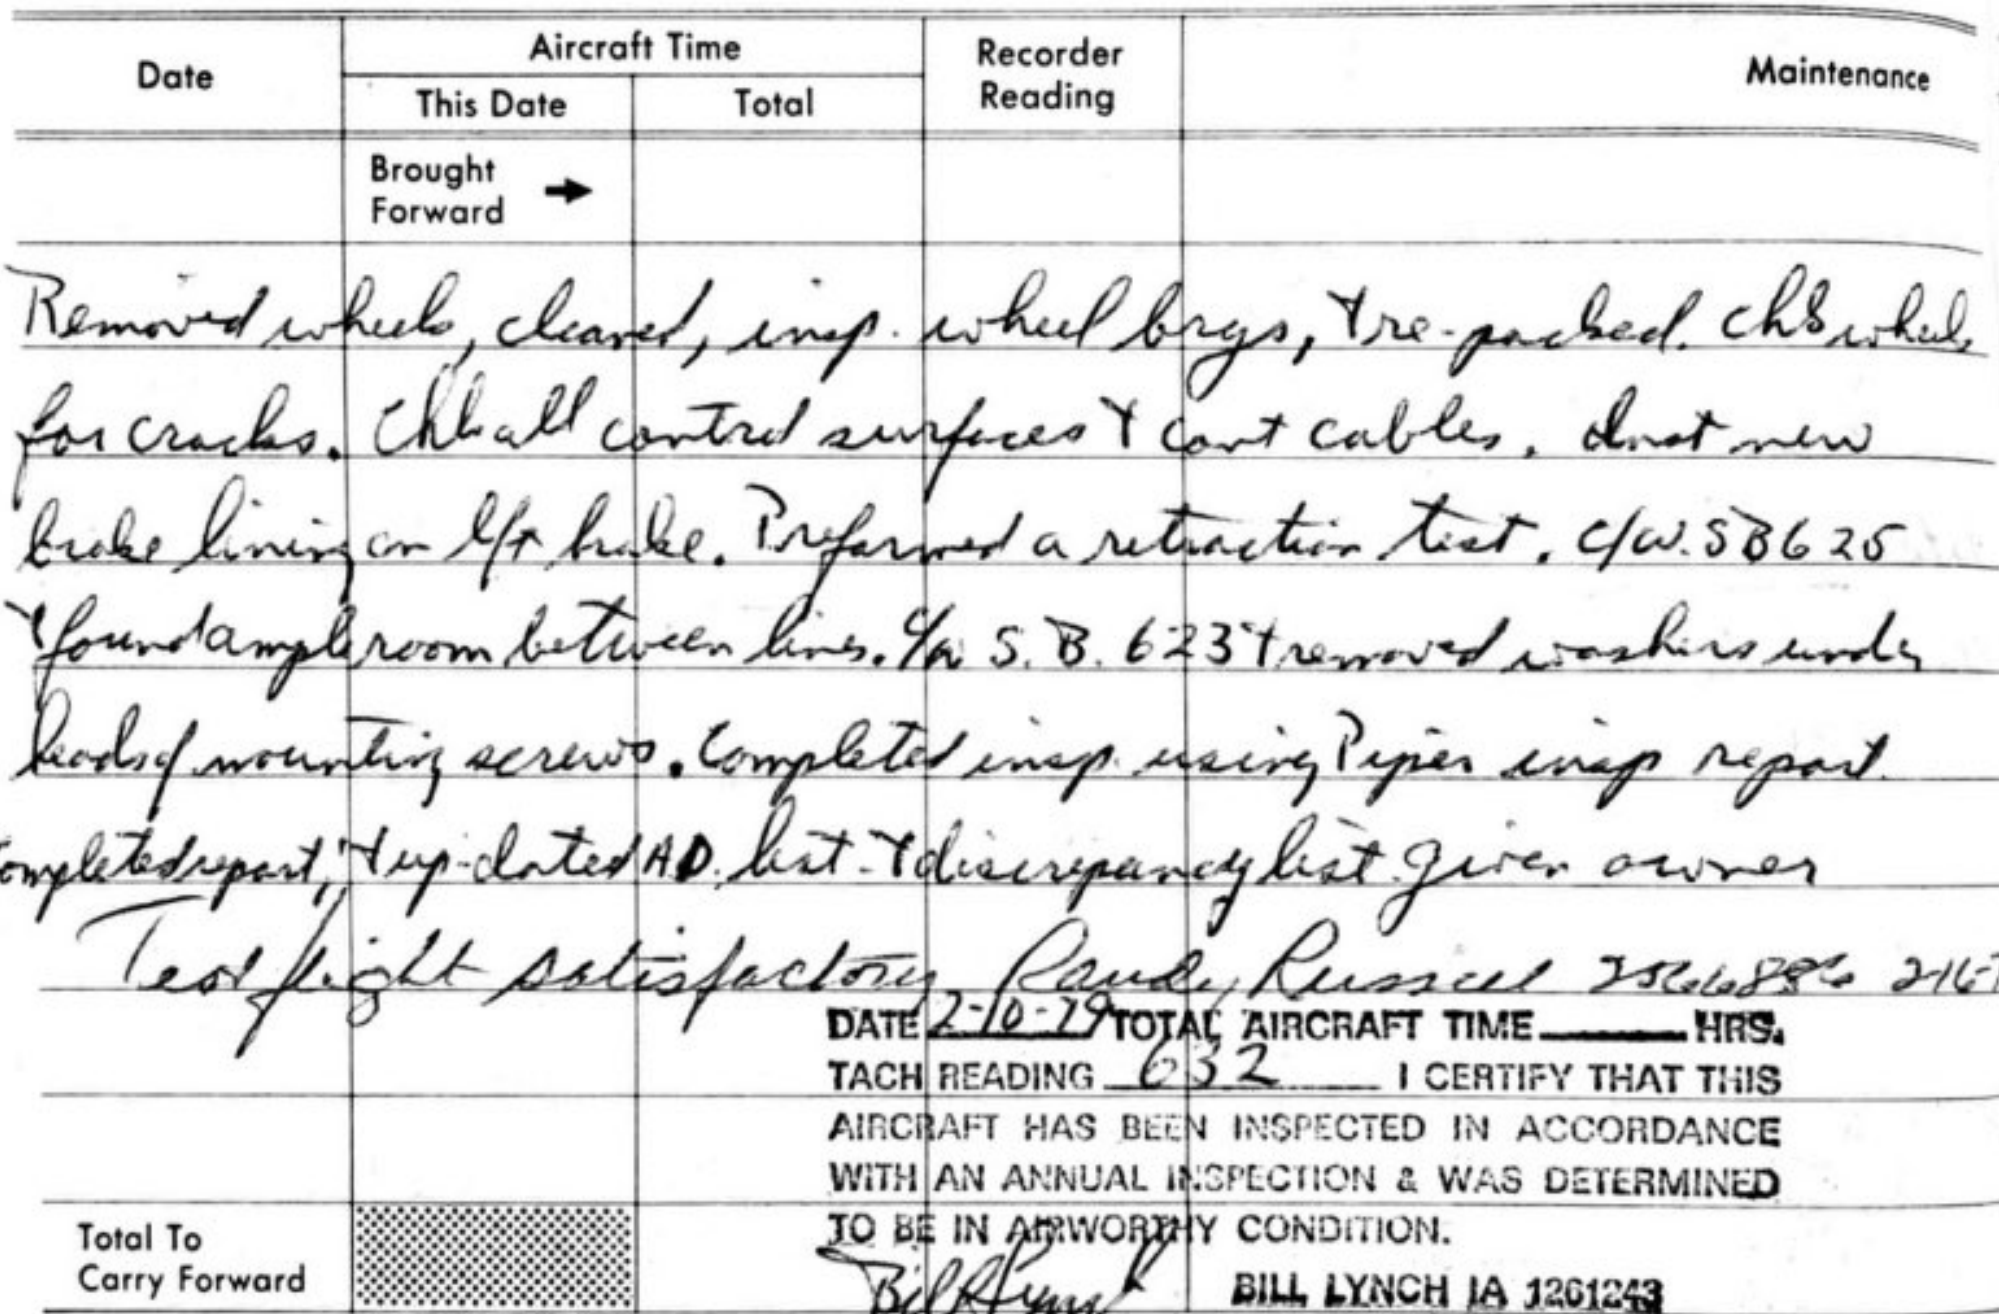 Date
Aircraft Time
Recorder Reading
Maintenance
This Date
Total
Brought Forward →
Removed wheels, cleaned, insp. wheel brgs, + re-packed. Chk wheels
for cracks. Chk all control surfaces + cont cables. Inst new
brake lining on l/r brake. Preformed a retraction test. C/W. SB 625
+ found ample room between lines. C/W S. B. 623 + removed washers under
heads of mounting screws. Completed insp. using Piper insp report.
completed report, + up-dated A.D. list - + discrepancy list given owner
Test flight satisfactory Randy Russell
DATE 2-10-79 TOTAL AIRCRAFT TIME HRS.
TACH READING 632 I CERTIFY THAT THIS
AIRCRAFT HAS BEEN INSPECTED IN ACCORDANCE
WITH AN ANNUAL INSPECTION & WAS DETERMINED
TO BE IN AIRWORTHY CONDITION.
Bill Lynch BILL LYNCH IA 1261243
Total To
Carry Forward